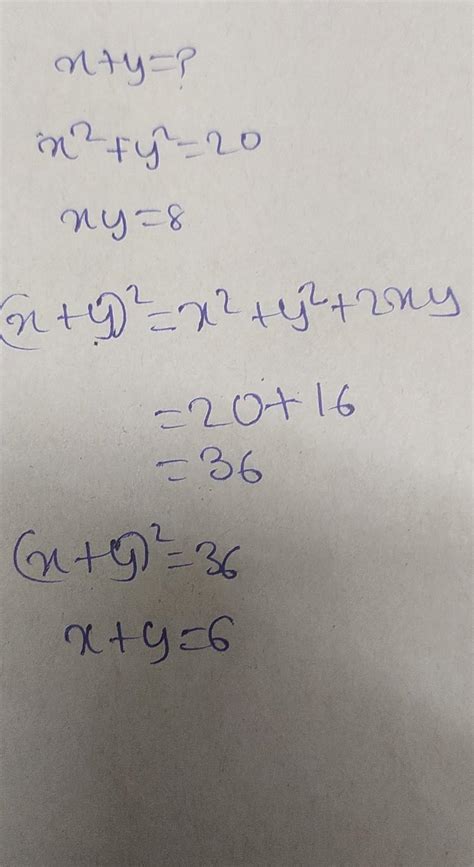 x+y=?
x²+y²=20
xy=8
(x+y)²=x²+y²+2xy
=20+16
=36
(x+y)²=36
x+y=6